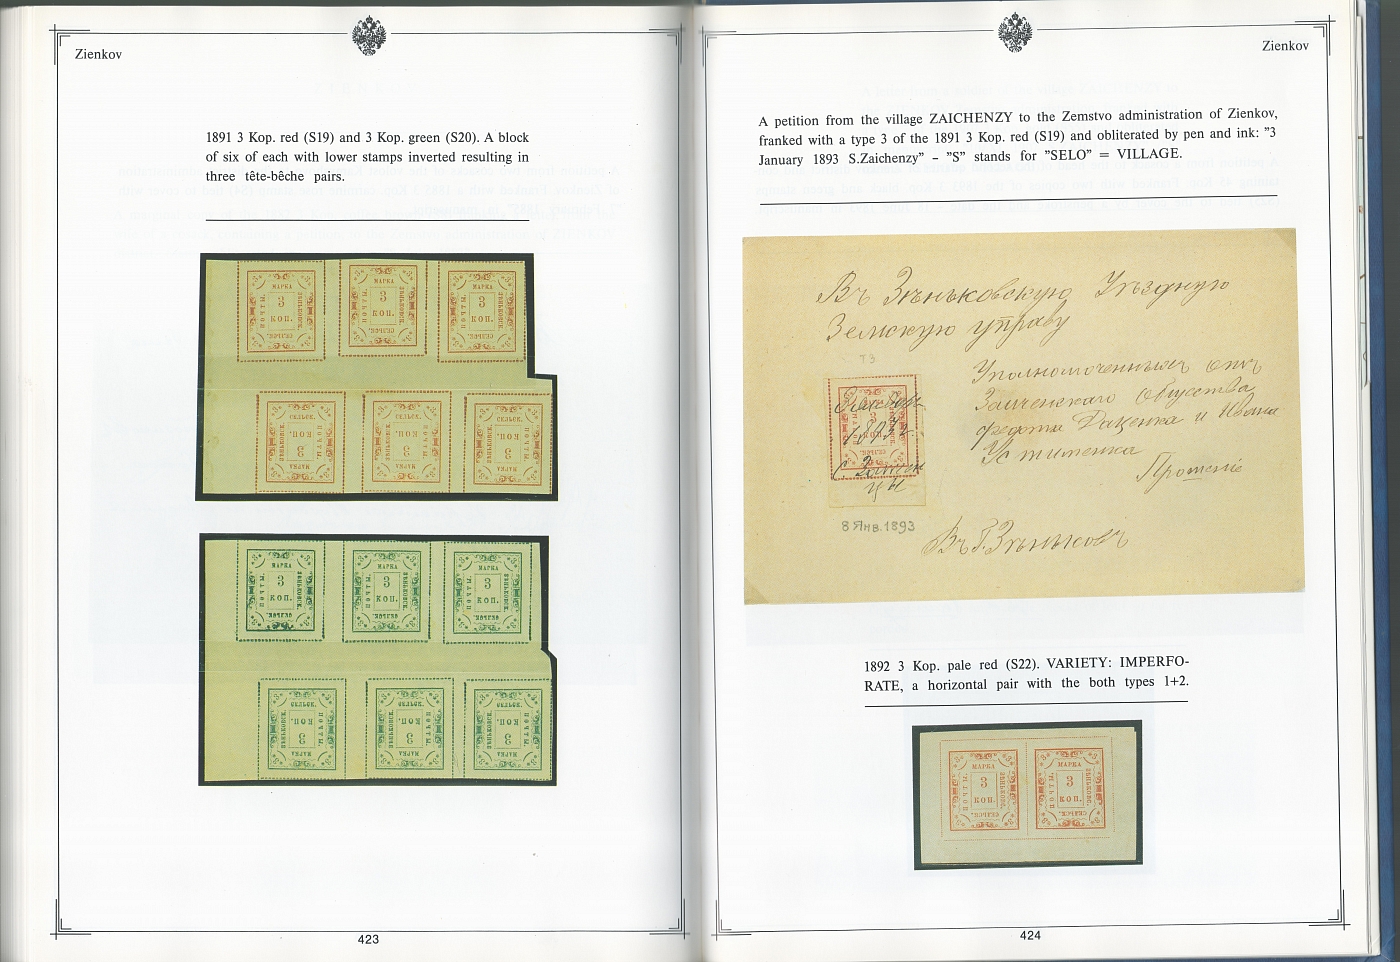 Zienkov
1891 3 Kop. red (S19) and 3 Kop. green (S20). A block
of six of each with lower stamps inverted resulting in
three tête-bêche pairs.
МАРКА
3
КОП.
СЕЛЬСК.
ПОЧТЫ.
ЗѢНЬКОВСК.
423
Zienkov
A petition from the village ZAICHENZY to the Zemstvo administration of Zienkov,
franked with a type 3 of the 1891 3 Kop. red (S19) and obliterated by pen and ink: "3
January 1893 S.Zaichenzy" – "S" stands for "SELO" = VILLAGE.
Въ Зѣньковскую Уѣздную
Земскую управу
Т3
Уполномоченныхъ отъ
Заиченскаго Общества
Федота Даценка и Ивана
Устименка
Прошеніе
1893
8 Янв. 1893
Въ Г. Зѣньковъ
1892 3 Kop. pale red (S22). VARIETY: IMPERFO-
RATE, a horizontal pair with the both types 1+2.
МАРКА МАРКА
3 3
КОП. КОП.
424